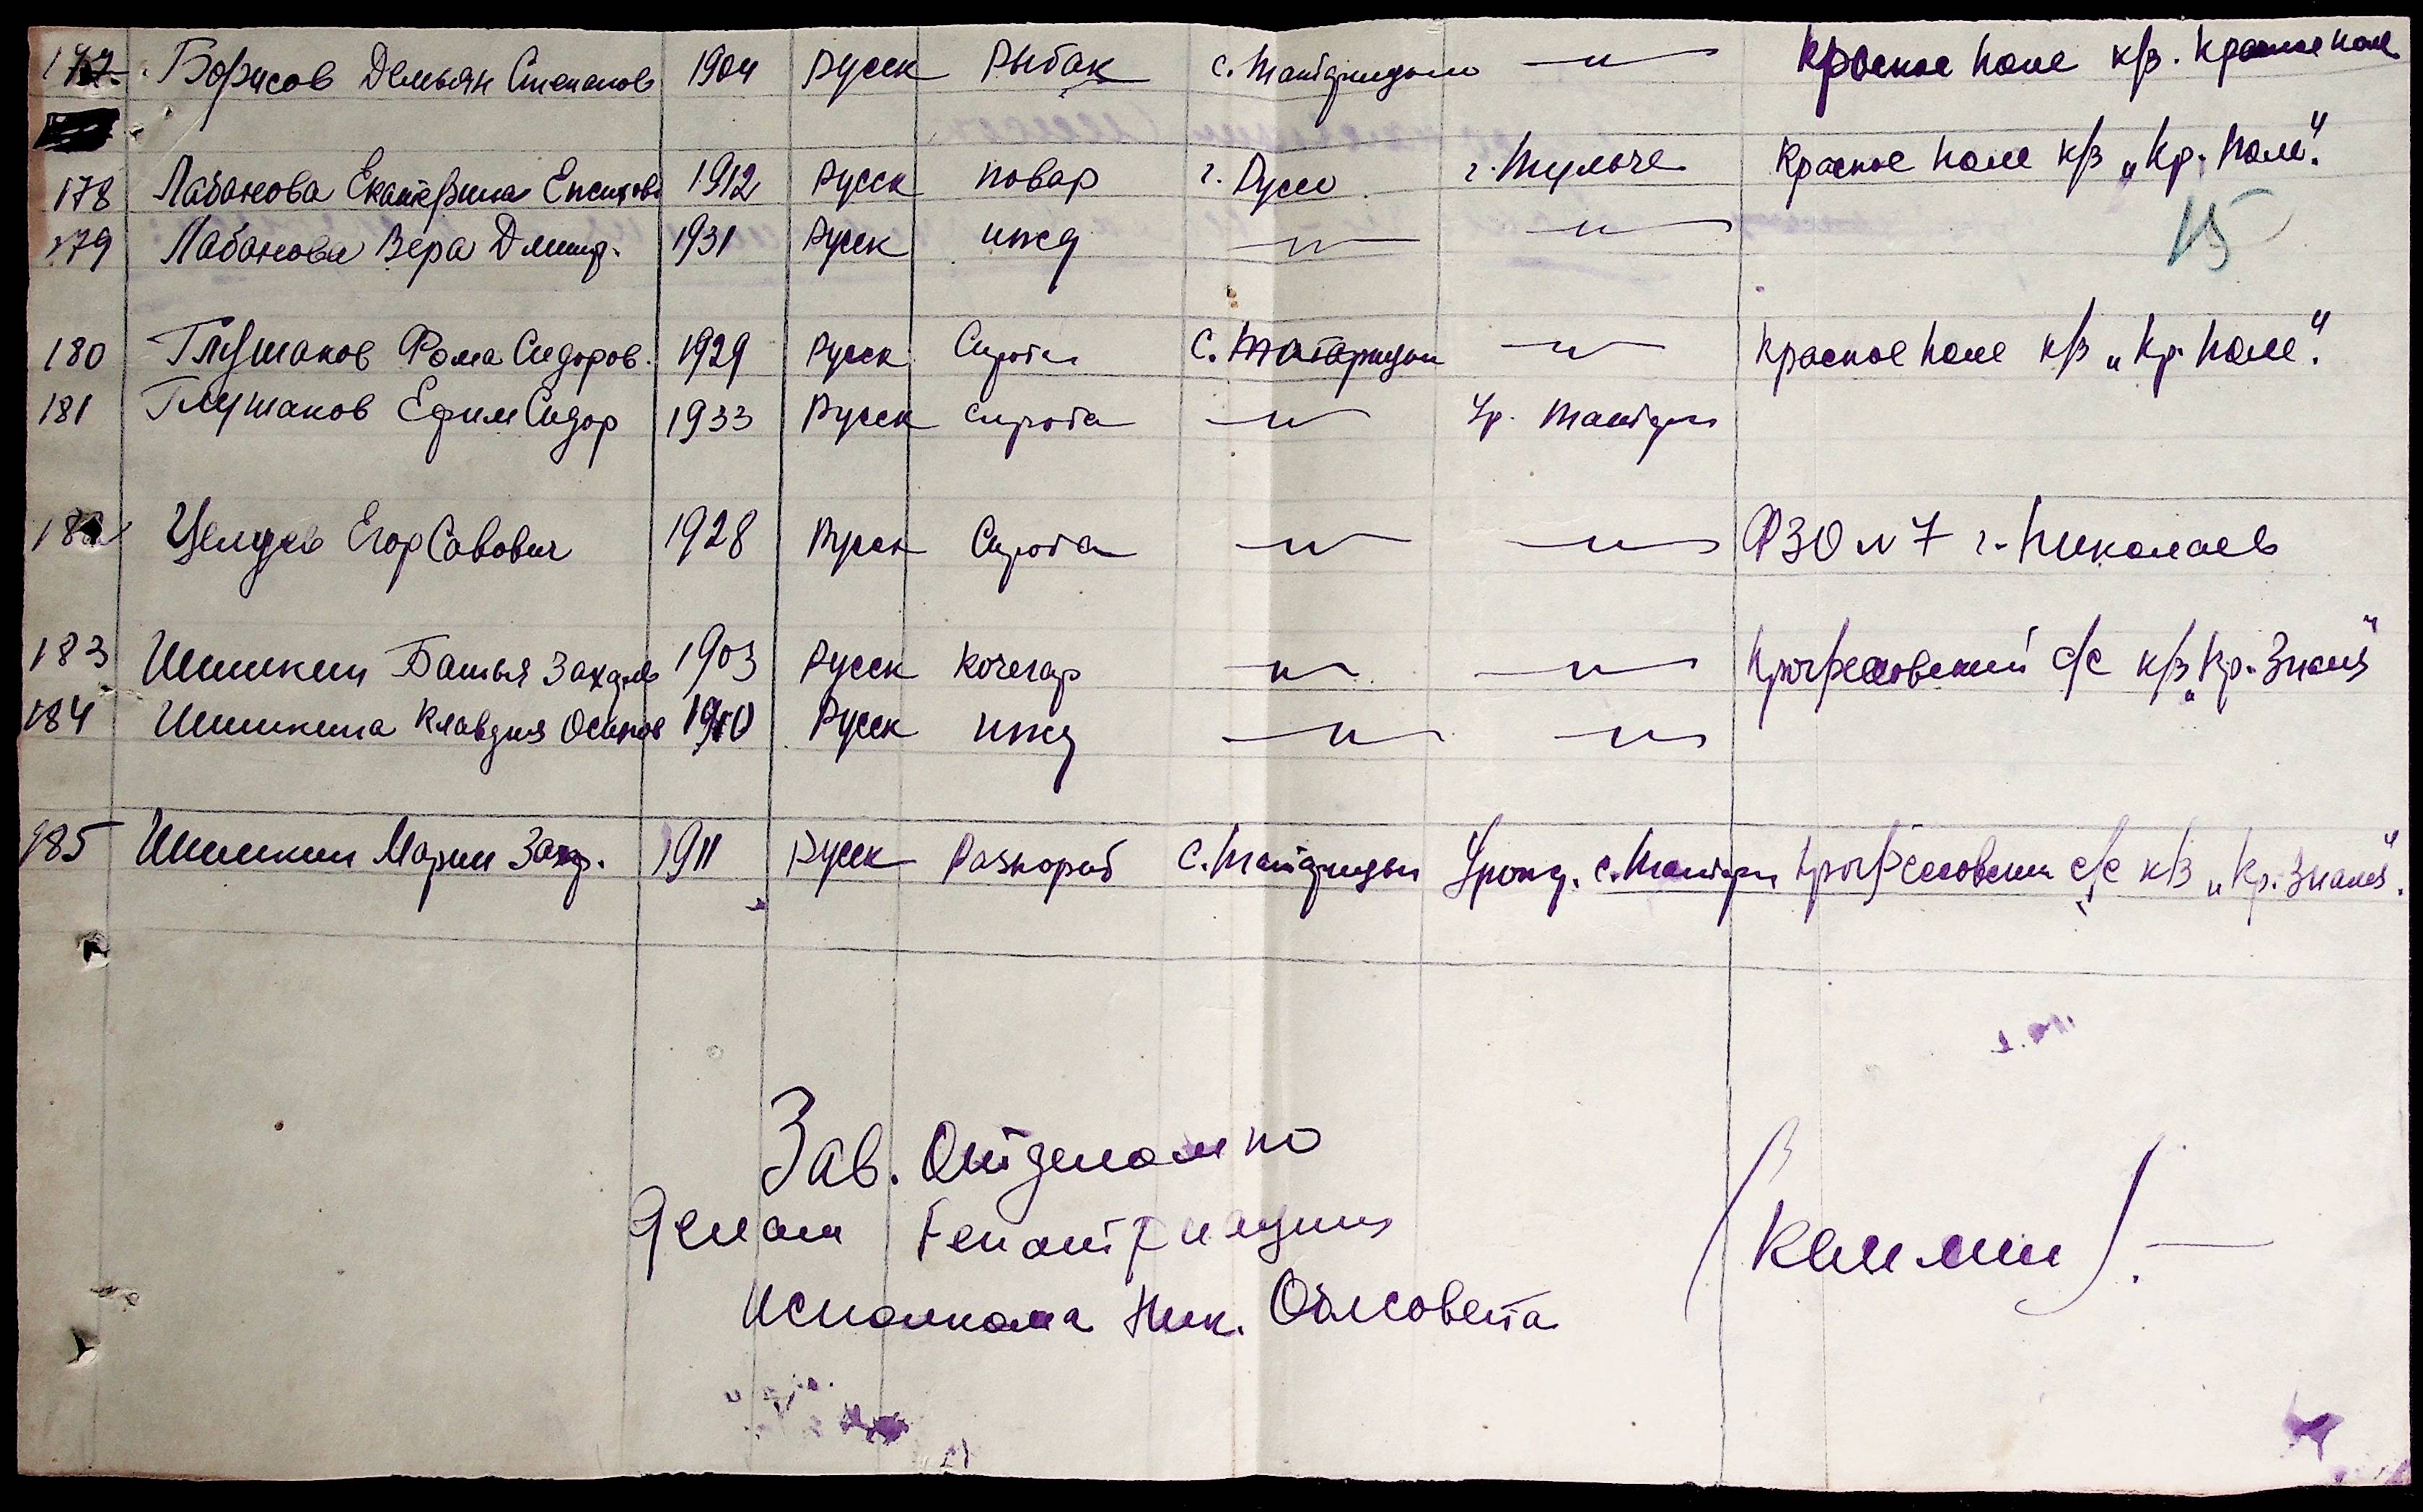 177 Борисов Демьян Степанов 1904 Русск Рыбак — " — Красное поле к/з. Красное поле
178 Лабанова Екатерина 1912 Русск повар г. Руссе г. Тульче Красное поле к/з „Кр. Поле".
179 Лабанова Вера Дмитр. 1931 Русск ижд — " — — " —
15
180 Глушаков Фома Сидоров. 1929 Русск Сирота с. Татарицы — " — Красное поле к/з „Кр. поле".
181 Глушаков Ефим Сидор 1933 Русск сирота — " — Ур.
182 Егор Савович 1928 Русск Сирота — " — — " — ФЗО № 7 г. Николаев
183 Шишкин Захаров 1903 Русск кочегар — " — — " — с/с к/з „Кр. Знамя"
184 Шишкина Клавдия Осипов 1910 Русск ижд — " — — " —
185 Шишкин Марин Захар. 1911 Русск Разнораб с/с к/з „Кр. Знамя".
Зав. Отделом по
делам репатриации
Исполкома Ник. Облсовета
(Климин). —